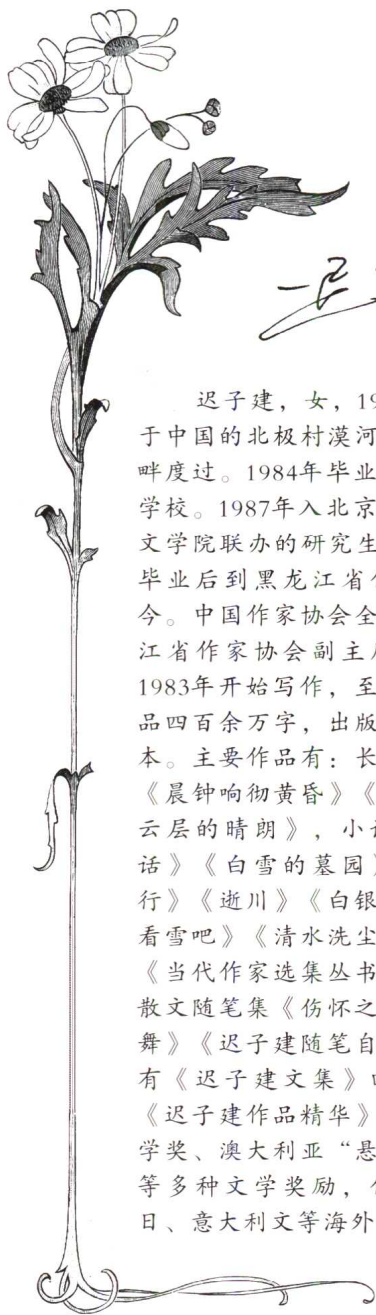 迟子建，女，19
于中国的北极村漠河
畔度过。1984年毕业
学校。1987年入北京
文学院联办的研究生
毕业后到黑龙江省作
今。中国作家协会全
江省作家协会副主席
1983年开始写作，至
品四百余万字，出版
本。主要作品有：长
《晨钟响彻黄昏》《
云层的晴朗》，小说
话》《白雪的墓园》
行》《逝川》《白银
看雪吧》《清水洗尘
《当代作家选集丛书
散文随笔集《伤怀之
舞》《迟子建随笔自
有《迟子建文集》四
《迟子建作品精华》
学奖、澳大利亚“悬
等多种文学奖励，作
日、意大利文等海外